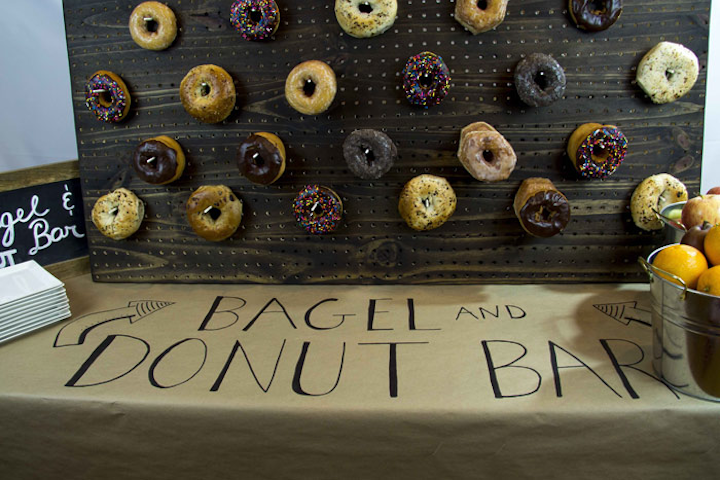 agel &
T Bar
BAGEL AND
DONUT BAR